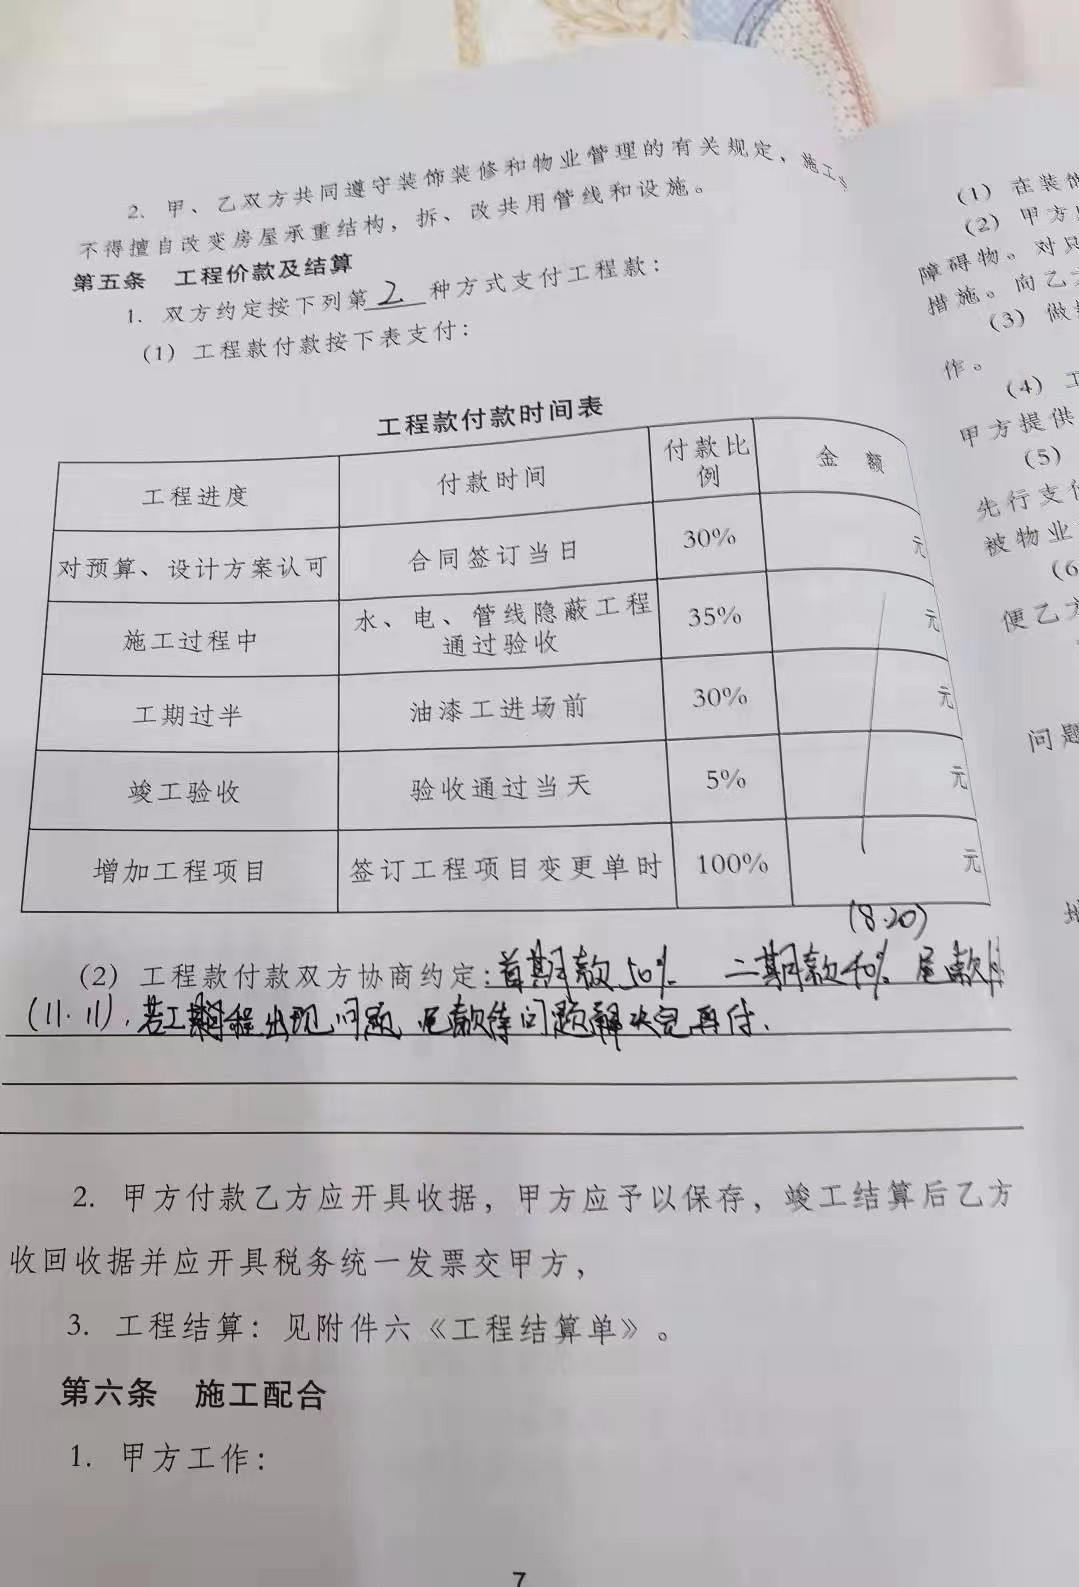 2. 甲、乙双方共同遵守装饰装修和物业管理的有关规定，施工
不得擅自改变房屋承重结构，拆、改共用管线和设施。
第五条 工程价款及结算
1. 双方约定按下列第2种方式支付工程款：
(1) 工程款付款按下表支付：
工程款付款时间表
工程进度 付款时间 付款比例 金额
对预算、设计方案认可 合同签订当日 30% 元
施工过程中 水、电、管线隐蔽工程通过验收 35% 元
工期过半 油漆工进场前 30% 元
竣工验收 验收通过当天 5% 元
增加工程项目 签订工程项目变更单时 100% 元
(8.20)
(2) 工程款付款双方协商约定：首期款50% 二期款40% 尾款
(11.11)，若工程出现问题 尾款待问题解决完再付.
2. 甲方付款乙方应开具收据，甲方应予以保存，竣工结算后乙方
收回收据并应开具税务统一发票交甲方，
3. 工程结算：见附件六《工程结算单》。
第六条 施工配合
1. 甲方工作：
7
(1) 在装饰
(2) 甲方
障碍物。对只
措施。向乙
(3) 做
作。
(4) 工
甲方提供
(5)
先行支付
被物业
(6
便乙方
问题